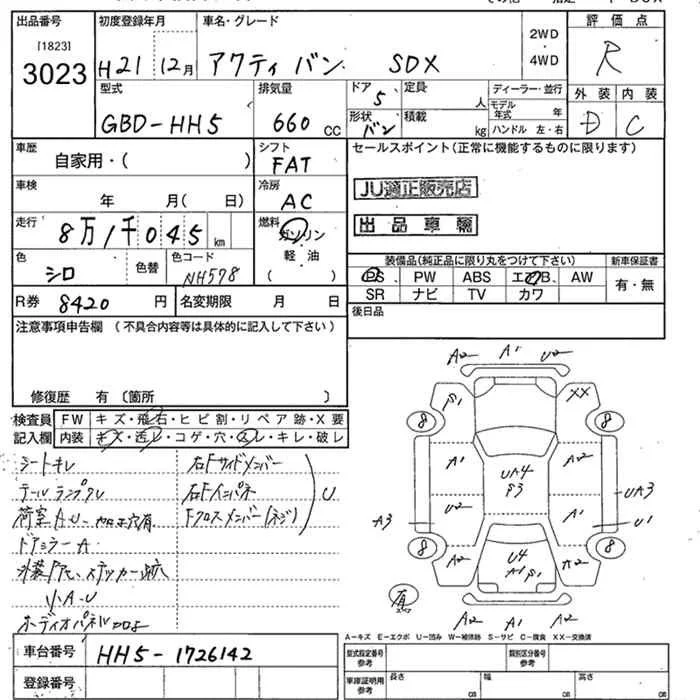 出品番号 初度登録年月 車名・グレード 2WD・4WD 評価点
[1823]
3023 H21 12月 アクティ バン SDX R
型式 排気量 ドア 定員 ディーラー・並行 外装 内装
GBD-HH5 660 CC 5 人 モデル年式 年 D C
形状 バン 積載 kg ハンドル 左・右
車歴 自家用・( ) シフト FAT セールスポイント(正常に機能するものに限ります)
車検 年 月( 日) 冷房 AC JU適正販売店
走行 8万1千045 km 燃料 ガソリン 軽油 ( ) 出品車輌
色 シロ 色替 色コード NH578
装備品(純正品に限り丸をつけて下さい) 新車保証書
PS PW ABS エアB AW 有・無
SR ナビ TV カワ
R券 8420 円 名変期限 月 日 後日品
注意事項申告欄 (不具合内容等は具体的に記入して下さい)
修復歴 有 〔箇所 〕
検査員記入欄 FW キズ・飛石・ヒビ割・リペア跡・X要
内装 キズ・汚レ・コゲ・穴・スレ・キレ・破レ
シートキレ 右Fサイドメンバー
テールランプワレ 右Fインパネ U
荷室A.U Fクロスメンバー(ネジ)
ドアミラーA
小A.U
オーディオパネル
A2 A1 U2
S1 XX
8 8
A1 A2
UA4
S3
U2 A1
A3 UA3 U1
8 8
A2 U4 A2
A1 S1
有
A2 A1 A2
A-キズ E-エクボ U-凹み W-補修跡 S-サビ C-腐食 XX-交換済
車台番号 HH5-1726142
型式指定番号参考 類別区分番号参考
登録番号
車庫証明用参考 長さ cm 幅 cm 高さ cm